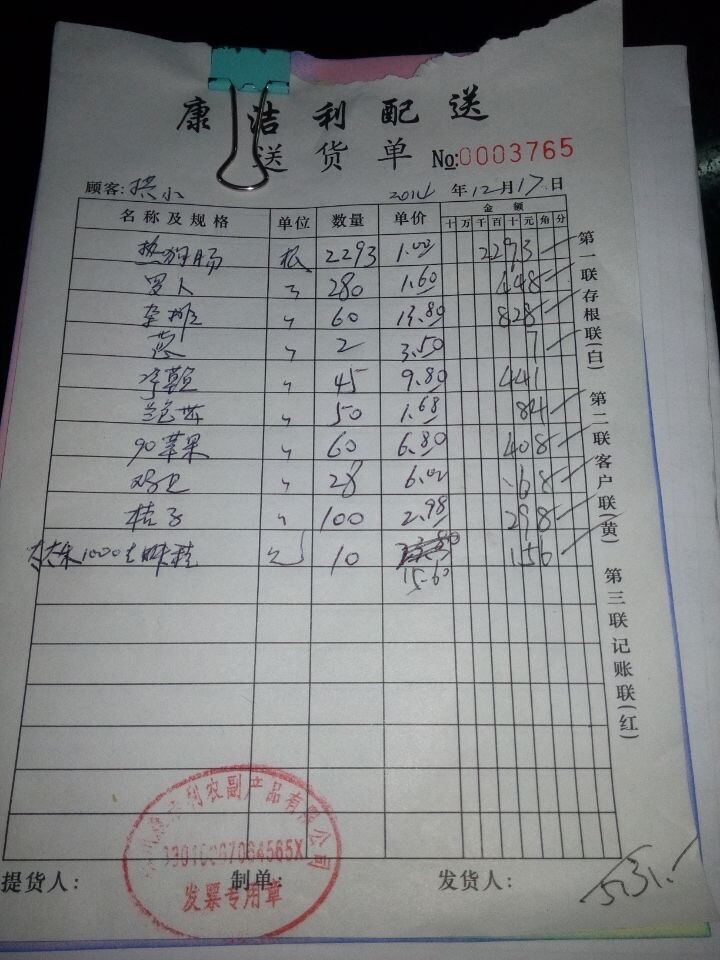 康洁利配送
送货单 No:0003765
顾客: 2014年12月17日
名称及规格 单位 数量 单价 金额
十万千百十元角分
热狗肠 根 2293 1.00 2293
罗卜 280 1.60 448
60 13.80 828
葱 2 3.50 7
45 9.80 441
50 1.68 84
90苹果 60 6.80 408
28 6.02 168
桔子 100 2.98 298
太太乐1000 10 15.60 156
第一联存根联(白)
第二联客户联(黄)
第三联记账联(红)
利农副产品有限公司
发票专用章
提货人: 制单: 发货人: 5131.-